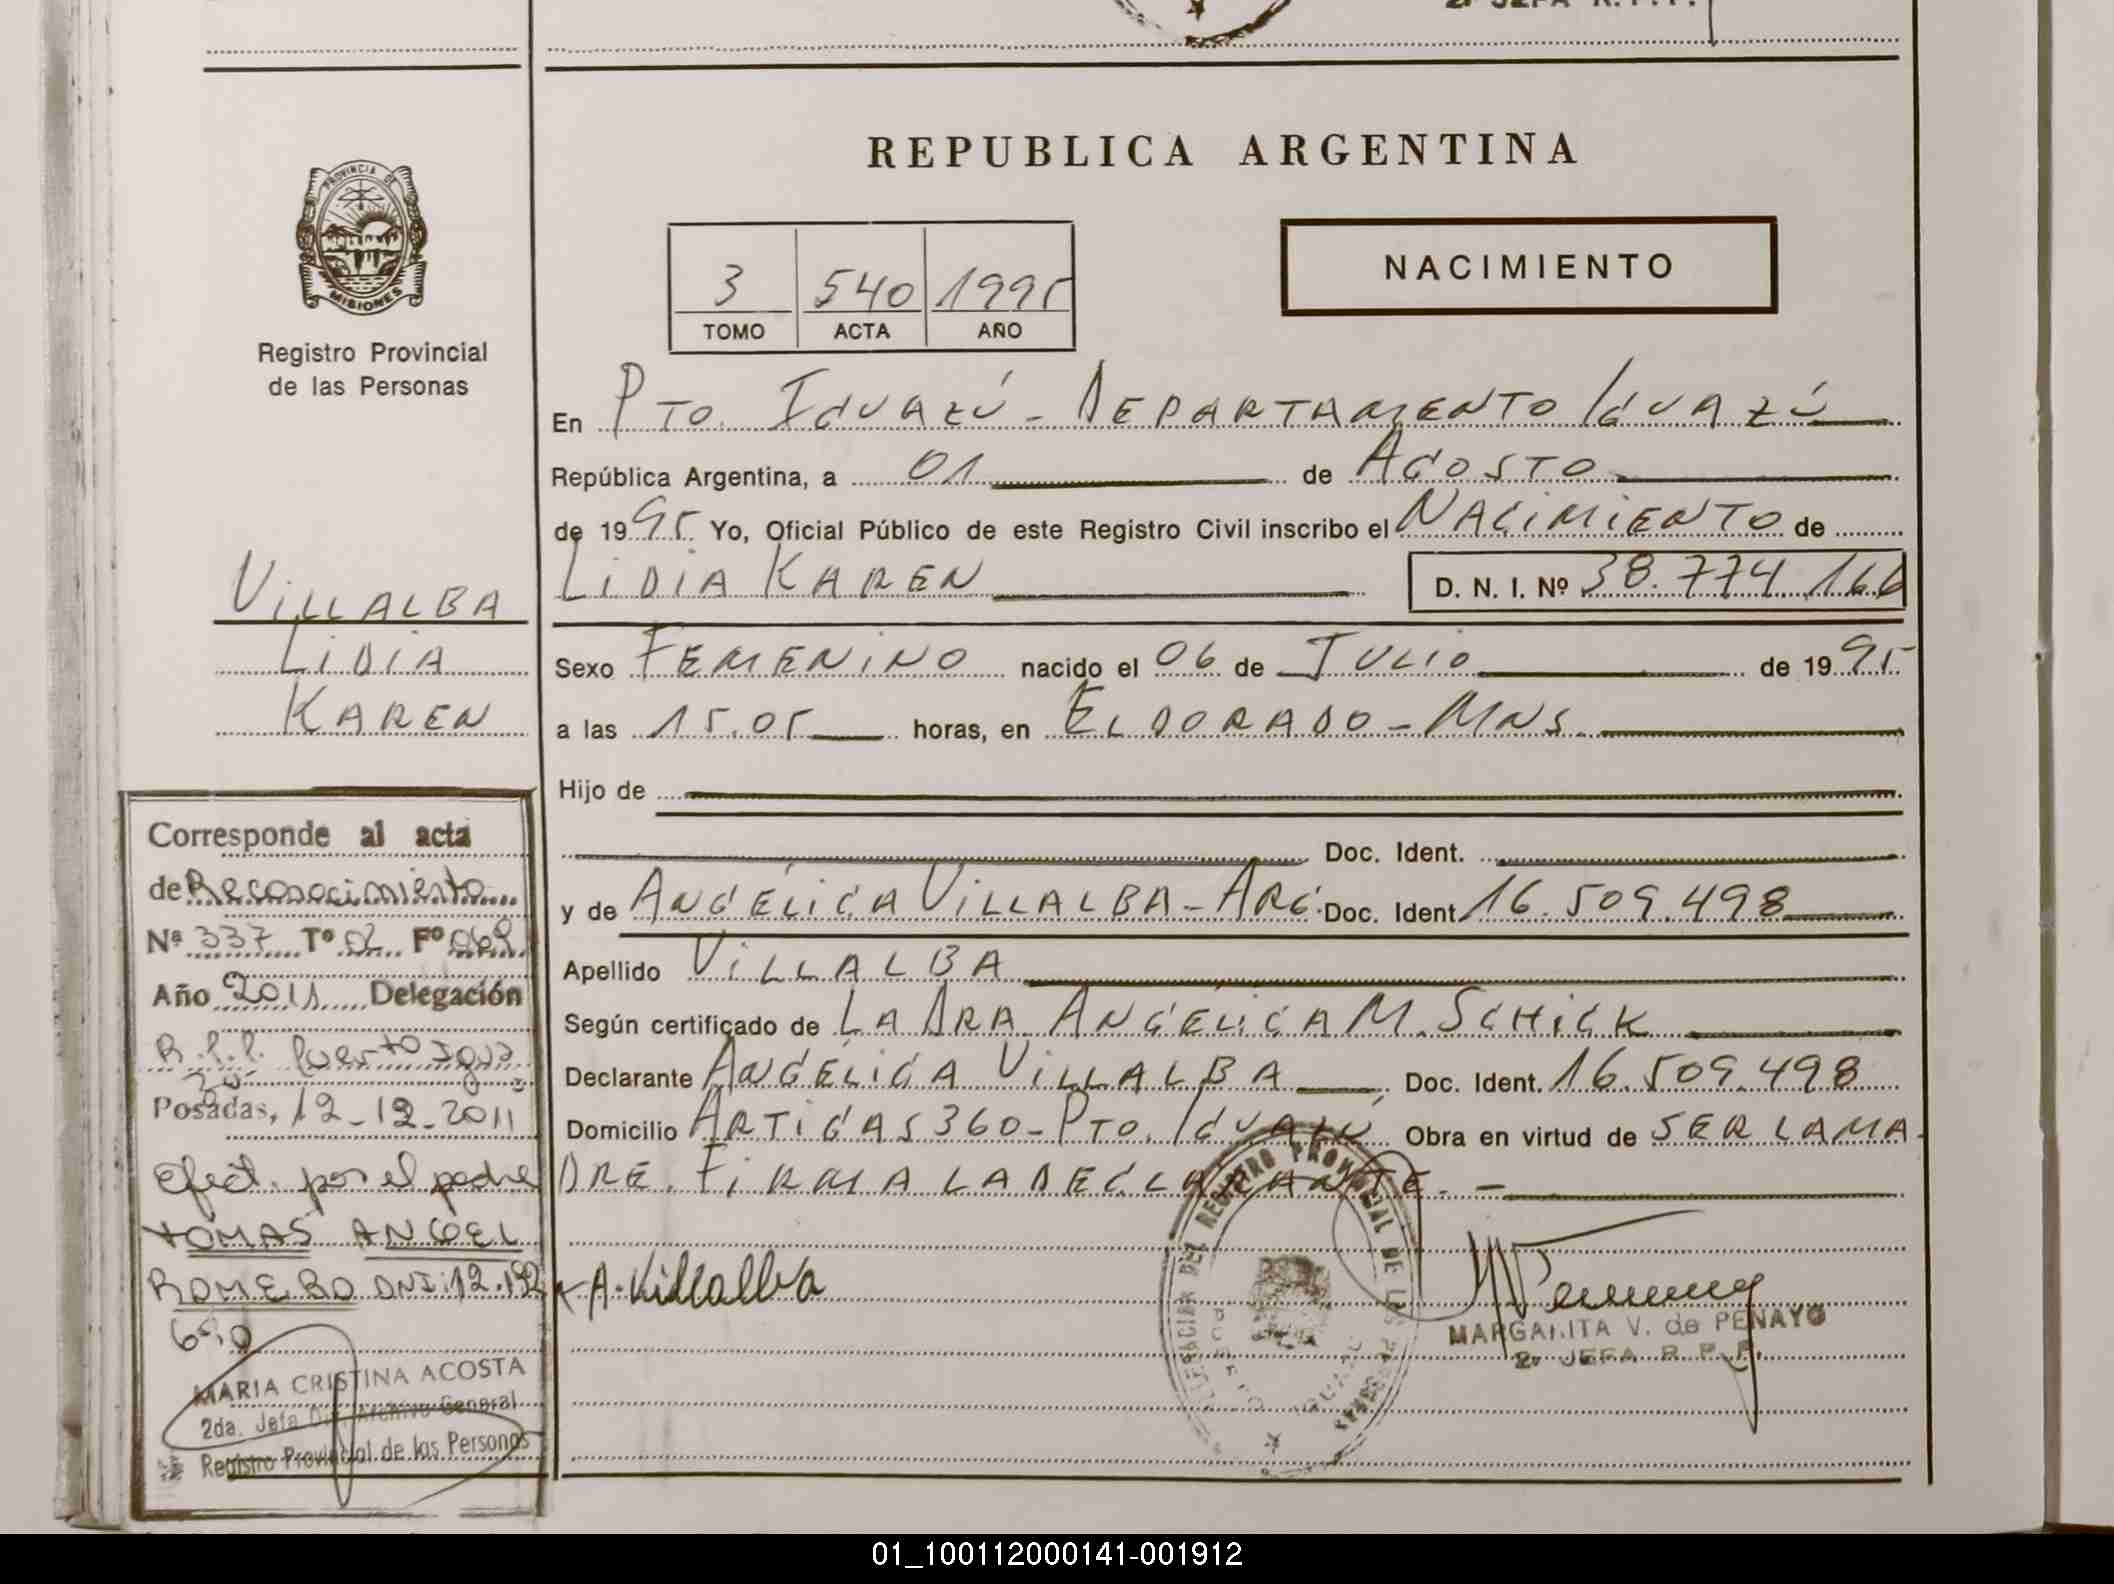 2º JEFA R.P.P.
REPUBLICA ARGENTINA
PROVINCIA DE
MISIONES
Registro Provincial
de las Personas
3 540 1995
TOMO ACTA AÑO
NACIMIENTO
En PTO. IGUAZÚ - DEPARTAMENTO IGUAZÚ
República Argentina, a 01 de AGOSTO
de 1995 Yo, Oficial Público de este Registro Civil inscribo el NACIMIENTO de
LIDIA KAREN D. N. I. Nº 38.774.166
Sexo FEMENINO nacido el 06 de JULIO de 1995
a las 15.05 horas, en ELDORADO - MNS.
Hijo de
Doc. Ident.
y de ANGÉLICA VILLALBA - ARG. Doc. Ident. 16.509.498
Apellido VILLALBA
Según certificado de LA DRA. ANGÉLICA M. SCHICK
Declarante ANGÉLICA VILLALBA Doc. Ident. 16.509.498
Domicilio ARTIGAS 360 - PTO. IGUAZÚ Obra en virtud de SER LA MA-
DRE. FIRMA LA DECLARANTE. -
A. Villalba
MARGARITA V. de PENAYO
2º JEFA R. P. P.
VILLALBA
LIDIA
KAREN
Corresponde al acta
de Reconocimiento
Nº 337 Tº 02 Fº 069
Año 2011 Delegación
R.P.P. Puerto Igua
zú
Posadas, 12-12-2011
Efect. por el padre
TOMAS ANGEL
ROMERO DNI: 12.192
650
MARIA CRISTINA ACOSTA
2da. Jefa Archivo General
Registro Provincial de las Personas
01_100112000141-001912